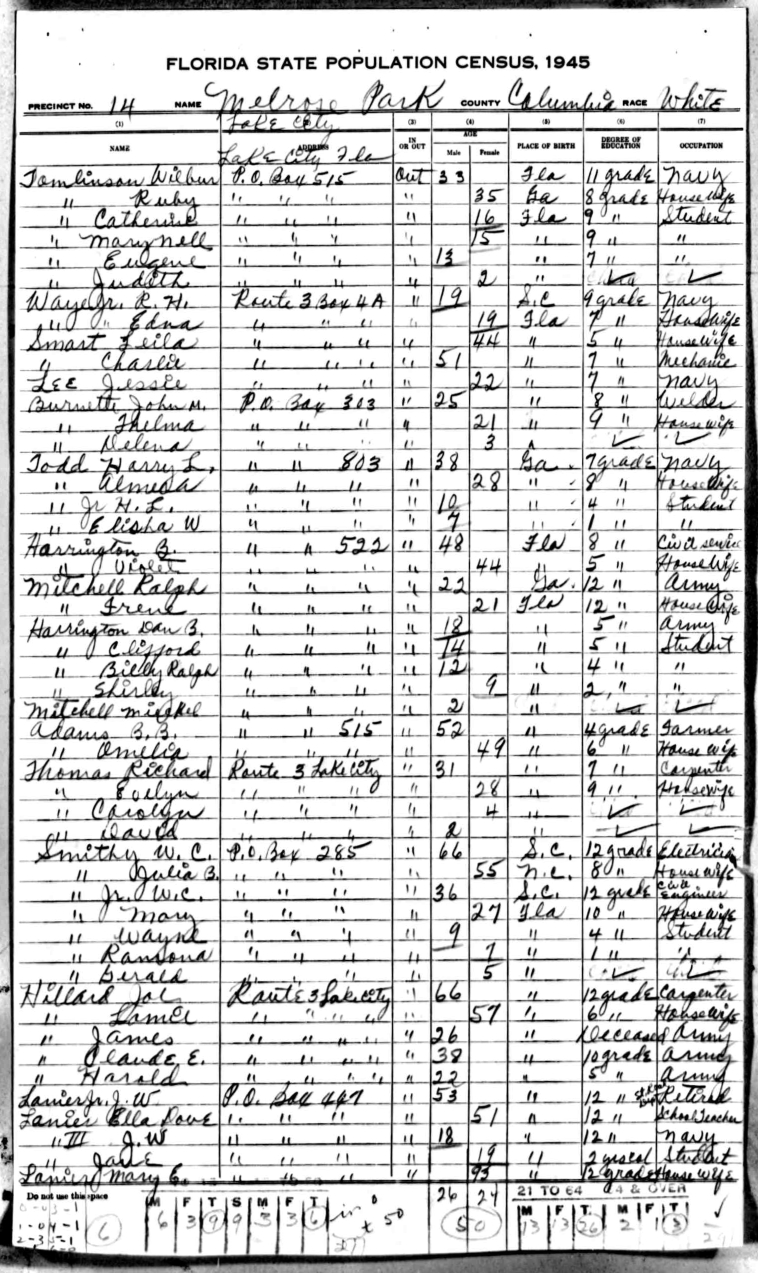 FLORIDA STATE POPULATION CENSUS, 1945
PRECINCT NO. 14 NAME Melrose Park COUNTY Columbia RACE White
(1) Lake City (3) (4) (5) (6) (7)
NAME ADDRESS IN OR OUT AGE Male Female PLACE OF BIRTH DEGREE OF EDUCATION OCCUPATION
Lake City Fla
Tomlinson Wilbur P.O. Box 515 Out 33 Fla 11 grade Navy
" Ruby " " " " 35 Ga 8 grade House Wife
" Catherine " " " " 16 Fla 9 " Student
" Mary Nell " " " " 15 " 9 " "
" Eugene " " " " 13 " 7 " "
" Judith " " " " 2 " ✓ ✓
Waye Jr. R. H. Route 3 Box 4A " 19 S.C 9 grade Navy
" " Edna " " " " 19 Fla 7 " House Wife
Smart Leila " " " " 44 " 5 " House Wife
" Charlie " " " " 51 " 7 " Mechanic
LEE Jessie " " " " 22 " 7 " Navy
Burnette John M. P.O. Box 303 " 25 " 8 " Welder
" Thelma " " " " 21 " 9 " House wife
" Delena " " " " 3 " ✓ ✓
Todd Harry L. " " 803 " 38 Ga. 7 grade Navy
" Almeda " " " " 28 " 8 " House Wife
" Jr H. L. " " " " 10 " 4 " Student
" Elisha W " " " " 7 " 1 " "
Harrington B. " " 522 " 48 Fla 8 " Civil service
" Violet " " " " 44 " 5 " House Wife
Mitchell Ralph " " " " 22 Ga. 12 " Army
" Irene " " " " 21 Fla 12 " House Wife
Harrington Dan B. " " " " 18 " 5 " Army
" Clifford " " " " 14 " 5 " Student
" Billy Ralph " " " " 12 " 4 " "
" Shirley " " " " 9 " 2 " "
Mitchell Michkel " " " " 2 " ✓ ✓
Adams B. B. " " 515 " 52 " 4 grade Farmer
" Omelia " " " " 49 " 6 " House wife
Thomas Richard Route 3 Lake City " 31 " 7 " Carpenter
" Evelyn " " " " 28 " 9 " House wife
" Carolyn " " " " 4 " ✓ ✓
" David " " " " 2 " ✓ ✓
Smithy W. C. P.O. Box 285 " 66 S.C. 12 grade Electrician
" Julia B. " " " " 55 N.C. 8 " House wife
" Jr. W.C. " " " " 36 S.C. 12 grade Civil Engineer
" Mary " " " " 27 Fla 10 " House wife
" Wayne " " " " 9 " 4 " Student
" Ramsona " " " " 7 " 1 " "
" Gerald " " " " 5 " ✓ ✓
Hillard Joe Route 3 Lake City " 66 " 12 grade Carpenter
" Lamie " " " " 57 " 6 " House wife
" James " " " " 26 " Deceased Army
" Claude E. " " " " 38 " 10 grade Army
" Harold " " " " 22 " 5 " Army
Lanier Jr. J. W P.O. Box 447 " 53 " 12 " Retired
Lanier Ella Dove " " " " 51 " 12 " School Teacher
" III J. W " " " " 18 " 12 " Navy
" Jane " " " " 19 " 2 Student
Lanier Mary E. " " " " 93 " 12 grade House Wife
Do not use this space M F T S M F T 26 24 21 TO 64 & OVER
6 6 3 9 9 3 3 6 50 50 M F T. M F T.
13 13 26 2 1 3